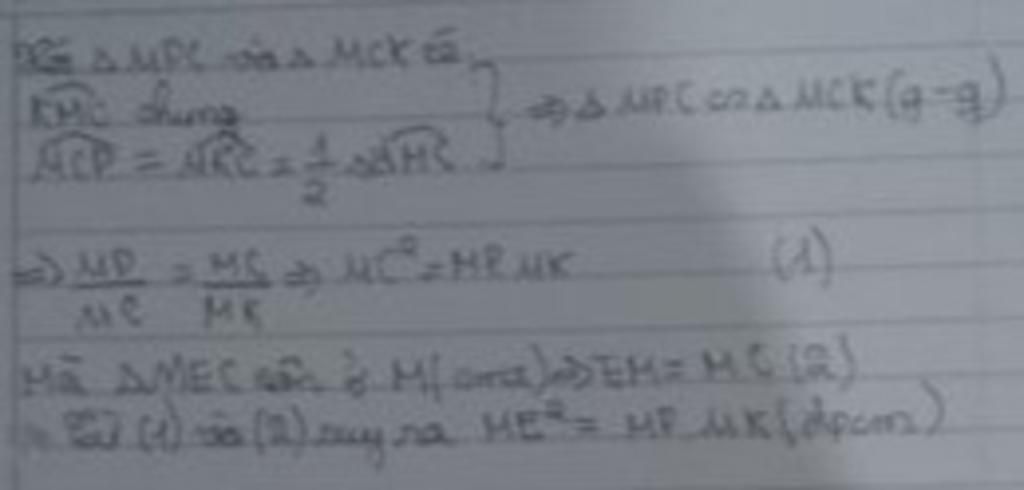 Xét Δ MPC và Δ MCK có
KMC chung } ⇒ Δ MPC ∽ Δ MCK (g-g)
MCP = MKC = 1/2 sđ MC
⇒ MP/MC = MC/MK ⇒ MC² = MP.MK (1)
Mà Δ MEC cân ở M (cmt) ⇒ EM = MC (2)
Từ (1) và (2) suy ra ME² = MP.MK (đpcm)